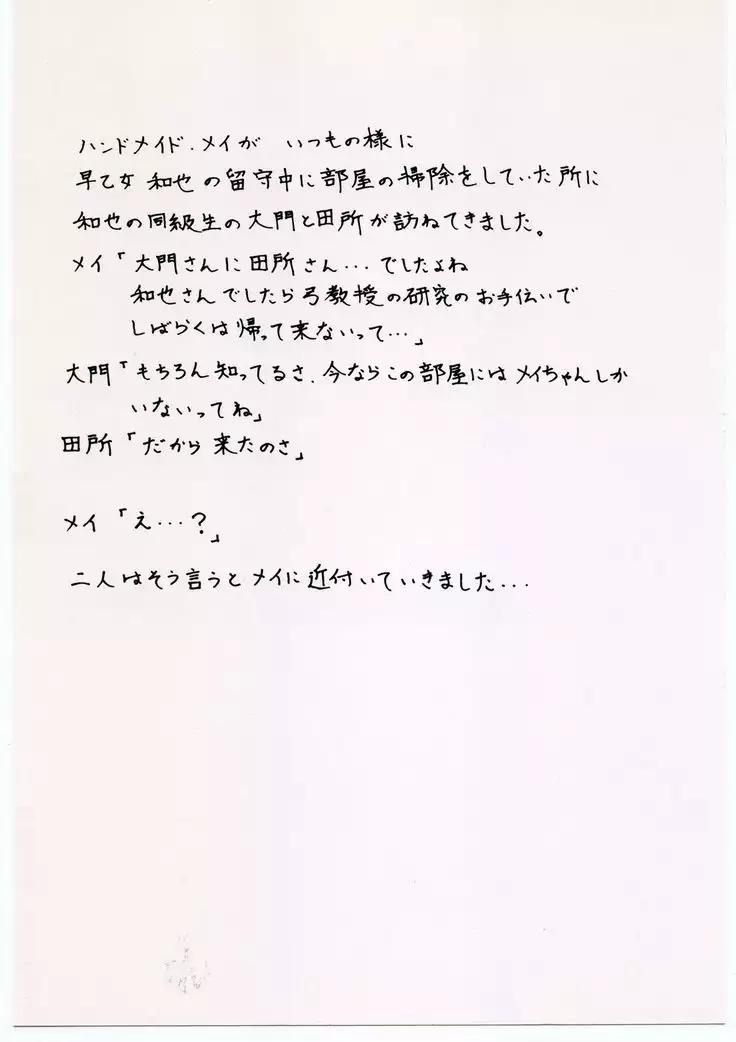 ハンドメイド・メイが いつもの様に
早乙女 和也の留守中に部屋の掃除をしていた所に
和也の同級生の大門と田所が訪ねてきました。
メイ「大門さんに田所さん...でしたよね
和也さんでしたら弓教授の研究のお手伝いで
しばらくは帰って来ないって...」
大門「もちろん知ってるさ．今ならこの部屋にはメイちゃんしか
いないってね」
田所「だから来たのさ」
メイ「え...？」
二人はそう言うとメイに近付いていきました...